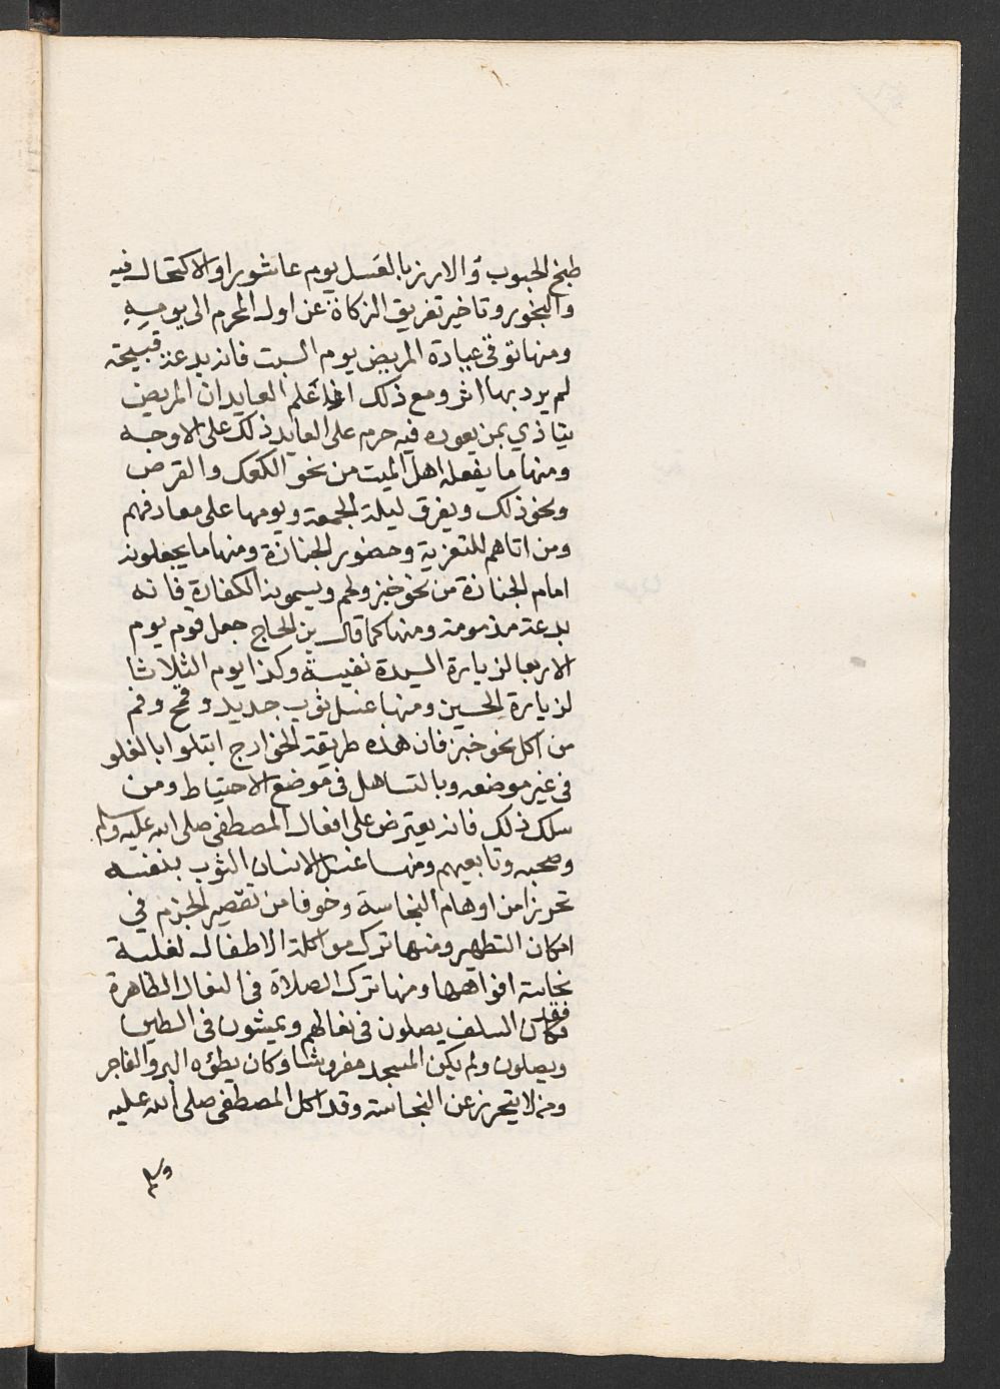 طبخ الحبوب والارز بالعسل يوم عاشورا والاكتحال فيه
والبخور وتاخير تفريق الزكاة عن اول المحرم الى يومه
ومنها توقي عيادة المريض يوم السبت فانه بدعة قبيحة
لم يرد بها اثر ومع ذلك اذا علم العايد ان المريض
يتاذي بمن يعوده فيه حرم على العايد ذلك على الاوجه
ومنها ما يفعله اهل الميت من نحو الكعك والقرص
ونحو ذلك ويفرق ليلة الجمعة ويومها على معارفهم
ومن اتاهم للتعزية وحضور الجنازة ومنها ما يجعلونه
امام الجنازة من نحو خبز ولحم ويسمونه الكفارة فانه
بدعة مذمومة ومنها كما قال بن الحاج جعل قوم يوم
الاربعا لزيارة السيدة نفيسة وكذا يوم الثلاثا
لزيارة الحسين ومنها غسل ثوب جديد وقمح وفم
من اكل نحو خبز فان هذه طريقة الخوارج ابتلوا بالغلو
في غير موضعه وبالتساهل في موضع الاحتياط ومن
سلك ذلك فانه يعترض على افعال المصطفى صلى الله عليه وسلم
وصحبه وتابعيهم ومنها غسل الانسان الثوب بنفسه
تحرزا من اوهام النجاسة وخوفا من تقصير الخدم في
امكان التطهير ومنها ترك مواكلة الاطفال لغلبة
نجاسة افواهها ومنها ترك الصلاة في النعال الطاهرة
فقد كان السلف يصلون في نعالهم ويمشون في الطين
ويصلون ولم يكن المسجد مفروشا وكان يطؤه البر والفاجر
ومن لا يتحرز عن النجاسة وقد اكل المصطفى صلى الله عليه
وسلم